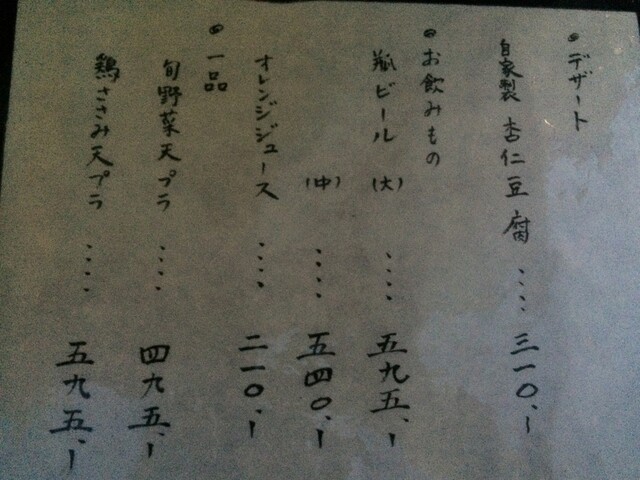 ・デザート
自家製 杏仁豆腐 ‥‥ 三一〇、ー
・お飲みもの
瓶ビール (大) ‥‥ 五九五、ー
(中) ‥‥ 五四〇、ー
オレンジジュース ‥‥ 二一〇、ー
・一品
旬野菜天プラ ‥‥ 四九五、ー
鶏ささみ天プラ ‥‥ 五九五、ー